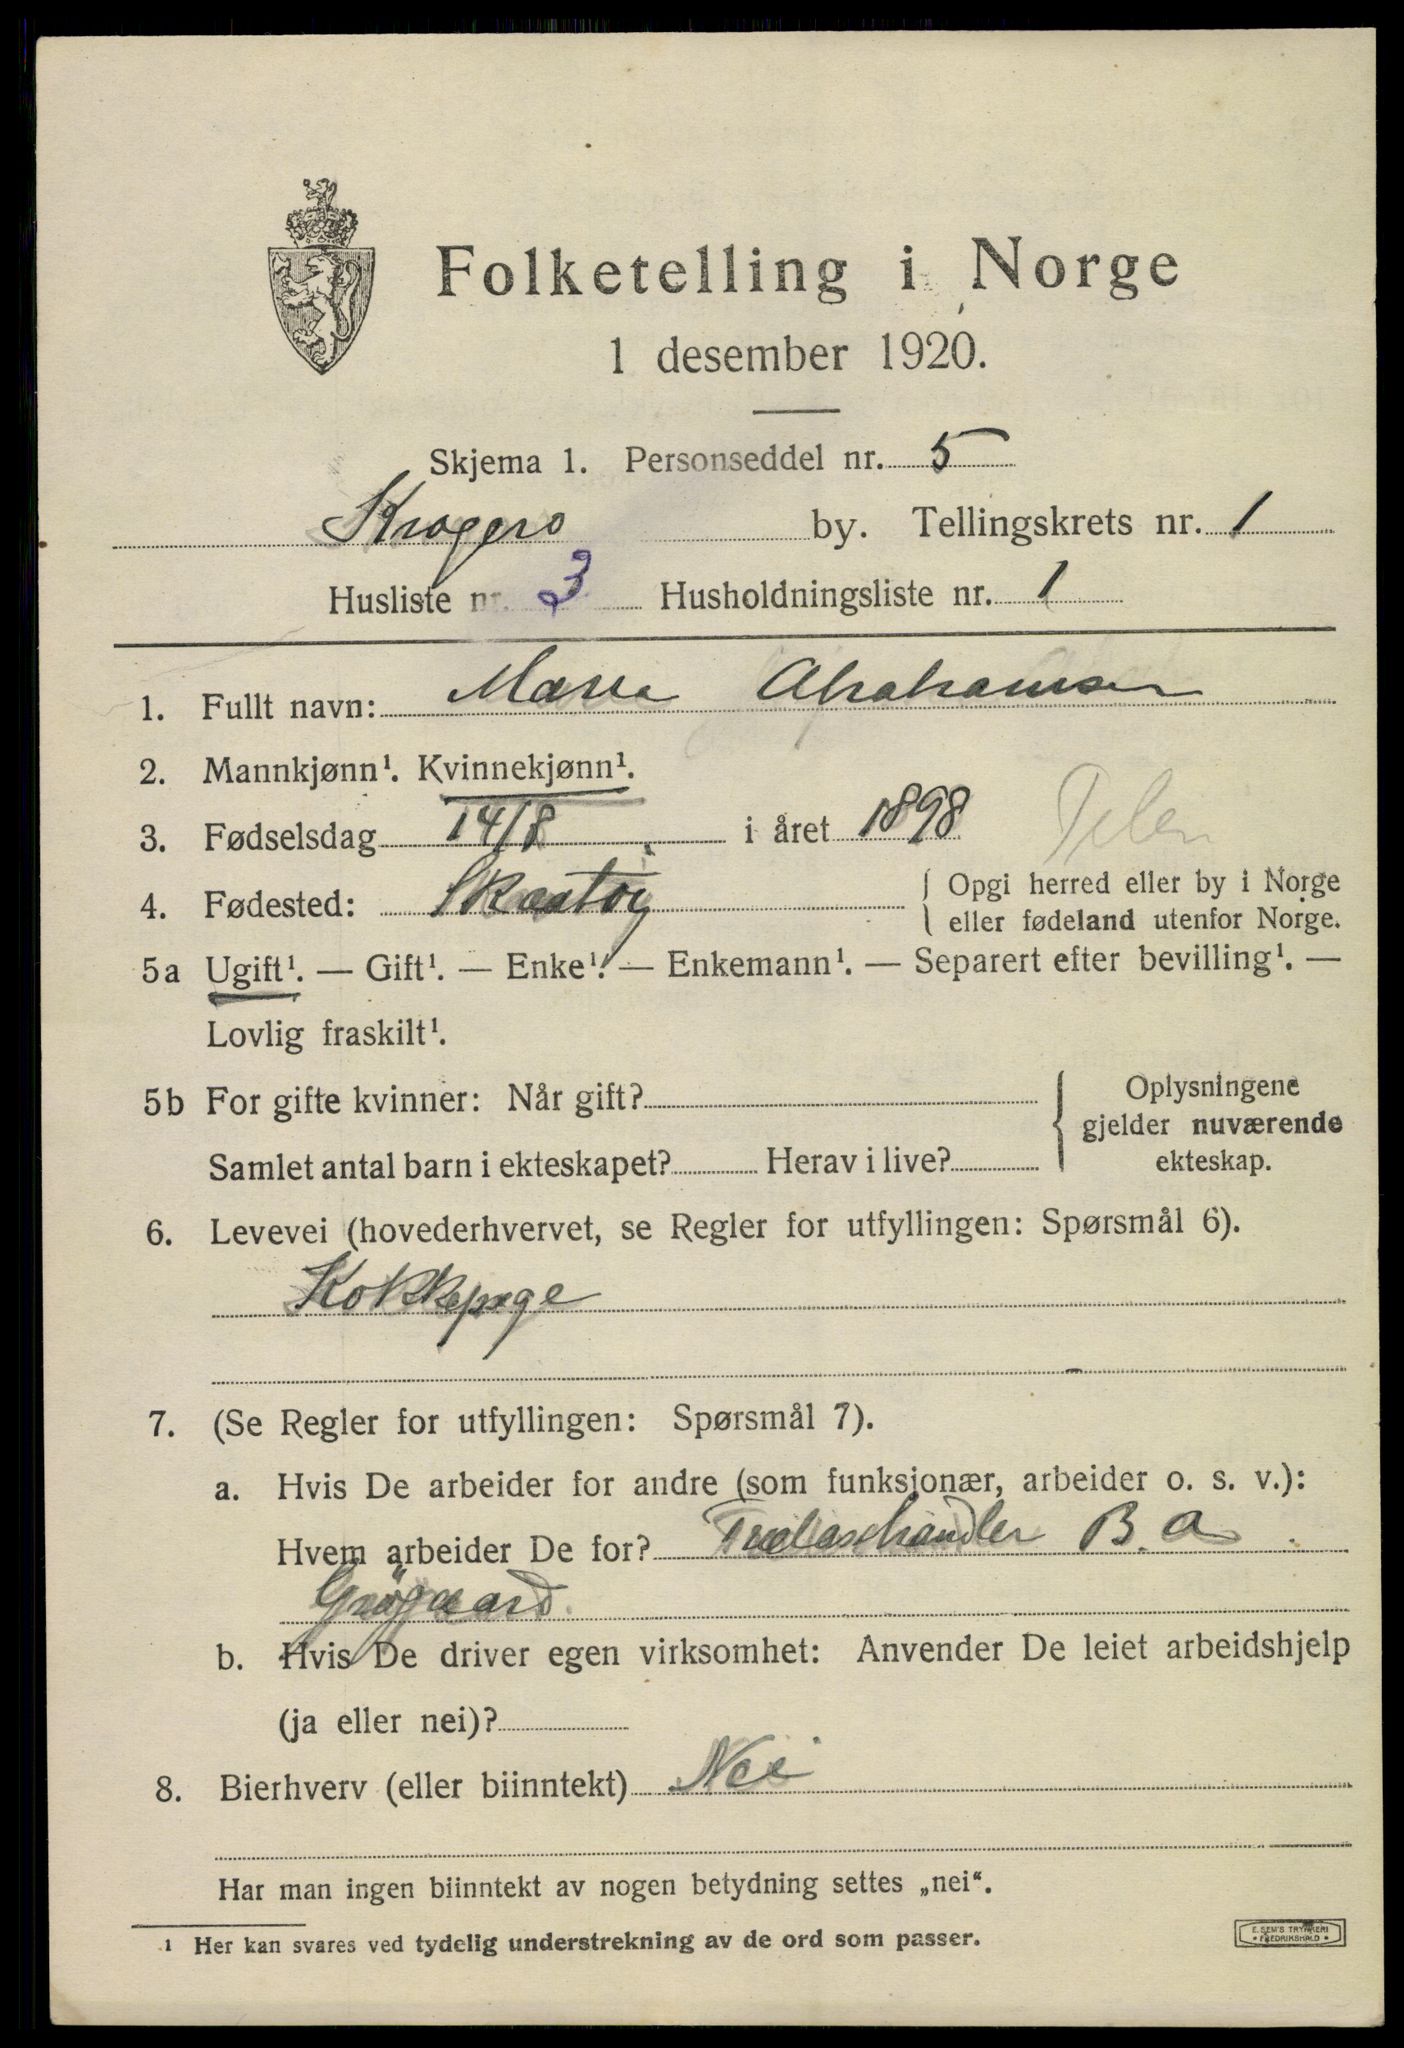 Folketelling i Norge
1 desember 1920.
Skjema 1. Personseddel nr. 5
Kragerø by. Tellingskrets nr. 1
Husliste nr. 3 Husholdningsliste nr. 1
1. Fullt navn: Marie Abrahamsen
2. Mannkjønn¹. Kvinnekjønn¹.
3. Fødselsdag 14/8 i året 1898
4. Fødested: Skaatøy { Opgi herred eller by i Norge
eller fødeland utenfor Norge.
5a Ugift¹. — Gift¹. — Enke¹. — Enkemann¹. — Separert efter bevilling¹. —
Lovlig fraskilt¹.
5b For gifte kvinner: Når gift? Oplysningene
gjelder nuværende
Samlet antal barn i ekteskapet? Herav i live? ekteskap.
6. Levevei (hovederhvervet, se Regler for utfyllingen: Spørsmål 6).
Kokkepige
7. (Se Regler for utfyllingen: Spørsmål 7).
a. Hvis De arbeider for andre (som funksjonær, arbeider o. s. v.):
Hvem arbeider De for? Trælasthandler B. A
Grøgaard
b. Hvis De driver egen virksomhet: Anvender De leiet arbeidshjelp
(ja eller nei)?
8. Bierhverv (eller biinntekt) Nei
Har man ingen biinntekt av nogen betydning settes „nei“.
¹ Her kan svares ved tydelig understrekning av de ord som passer.
E. SEM'S TRYKKERI
FREDRIKSHALD